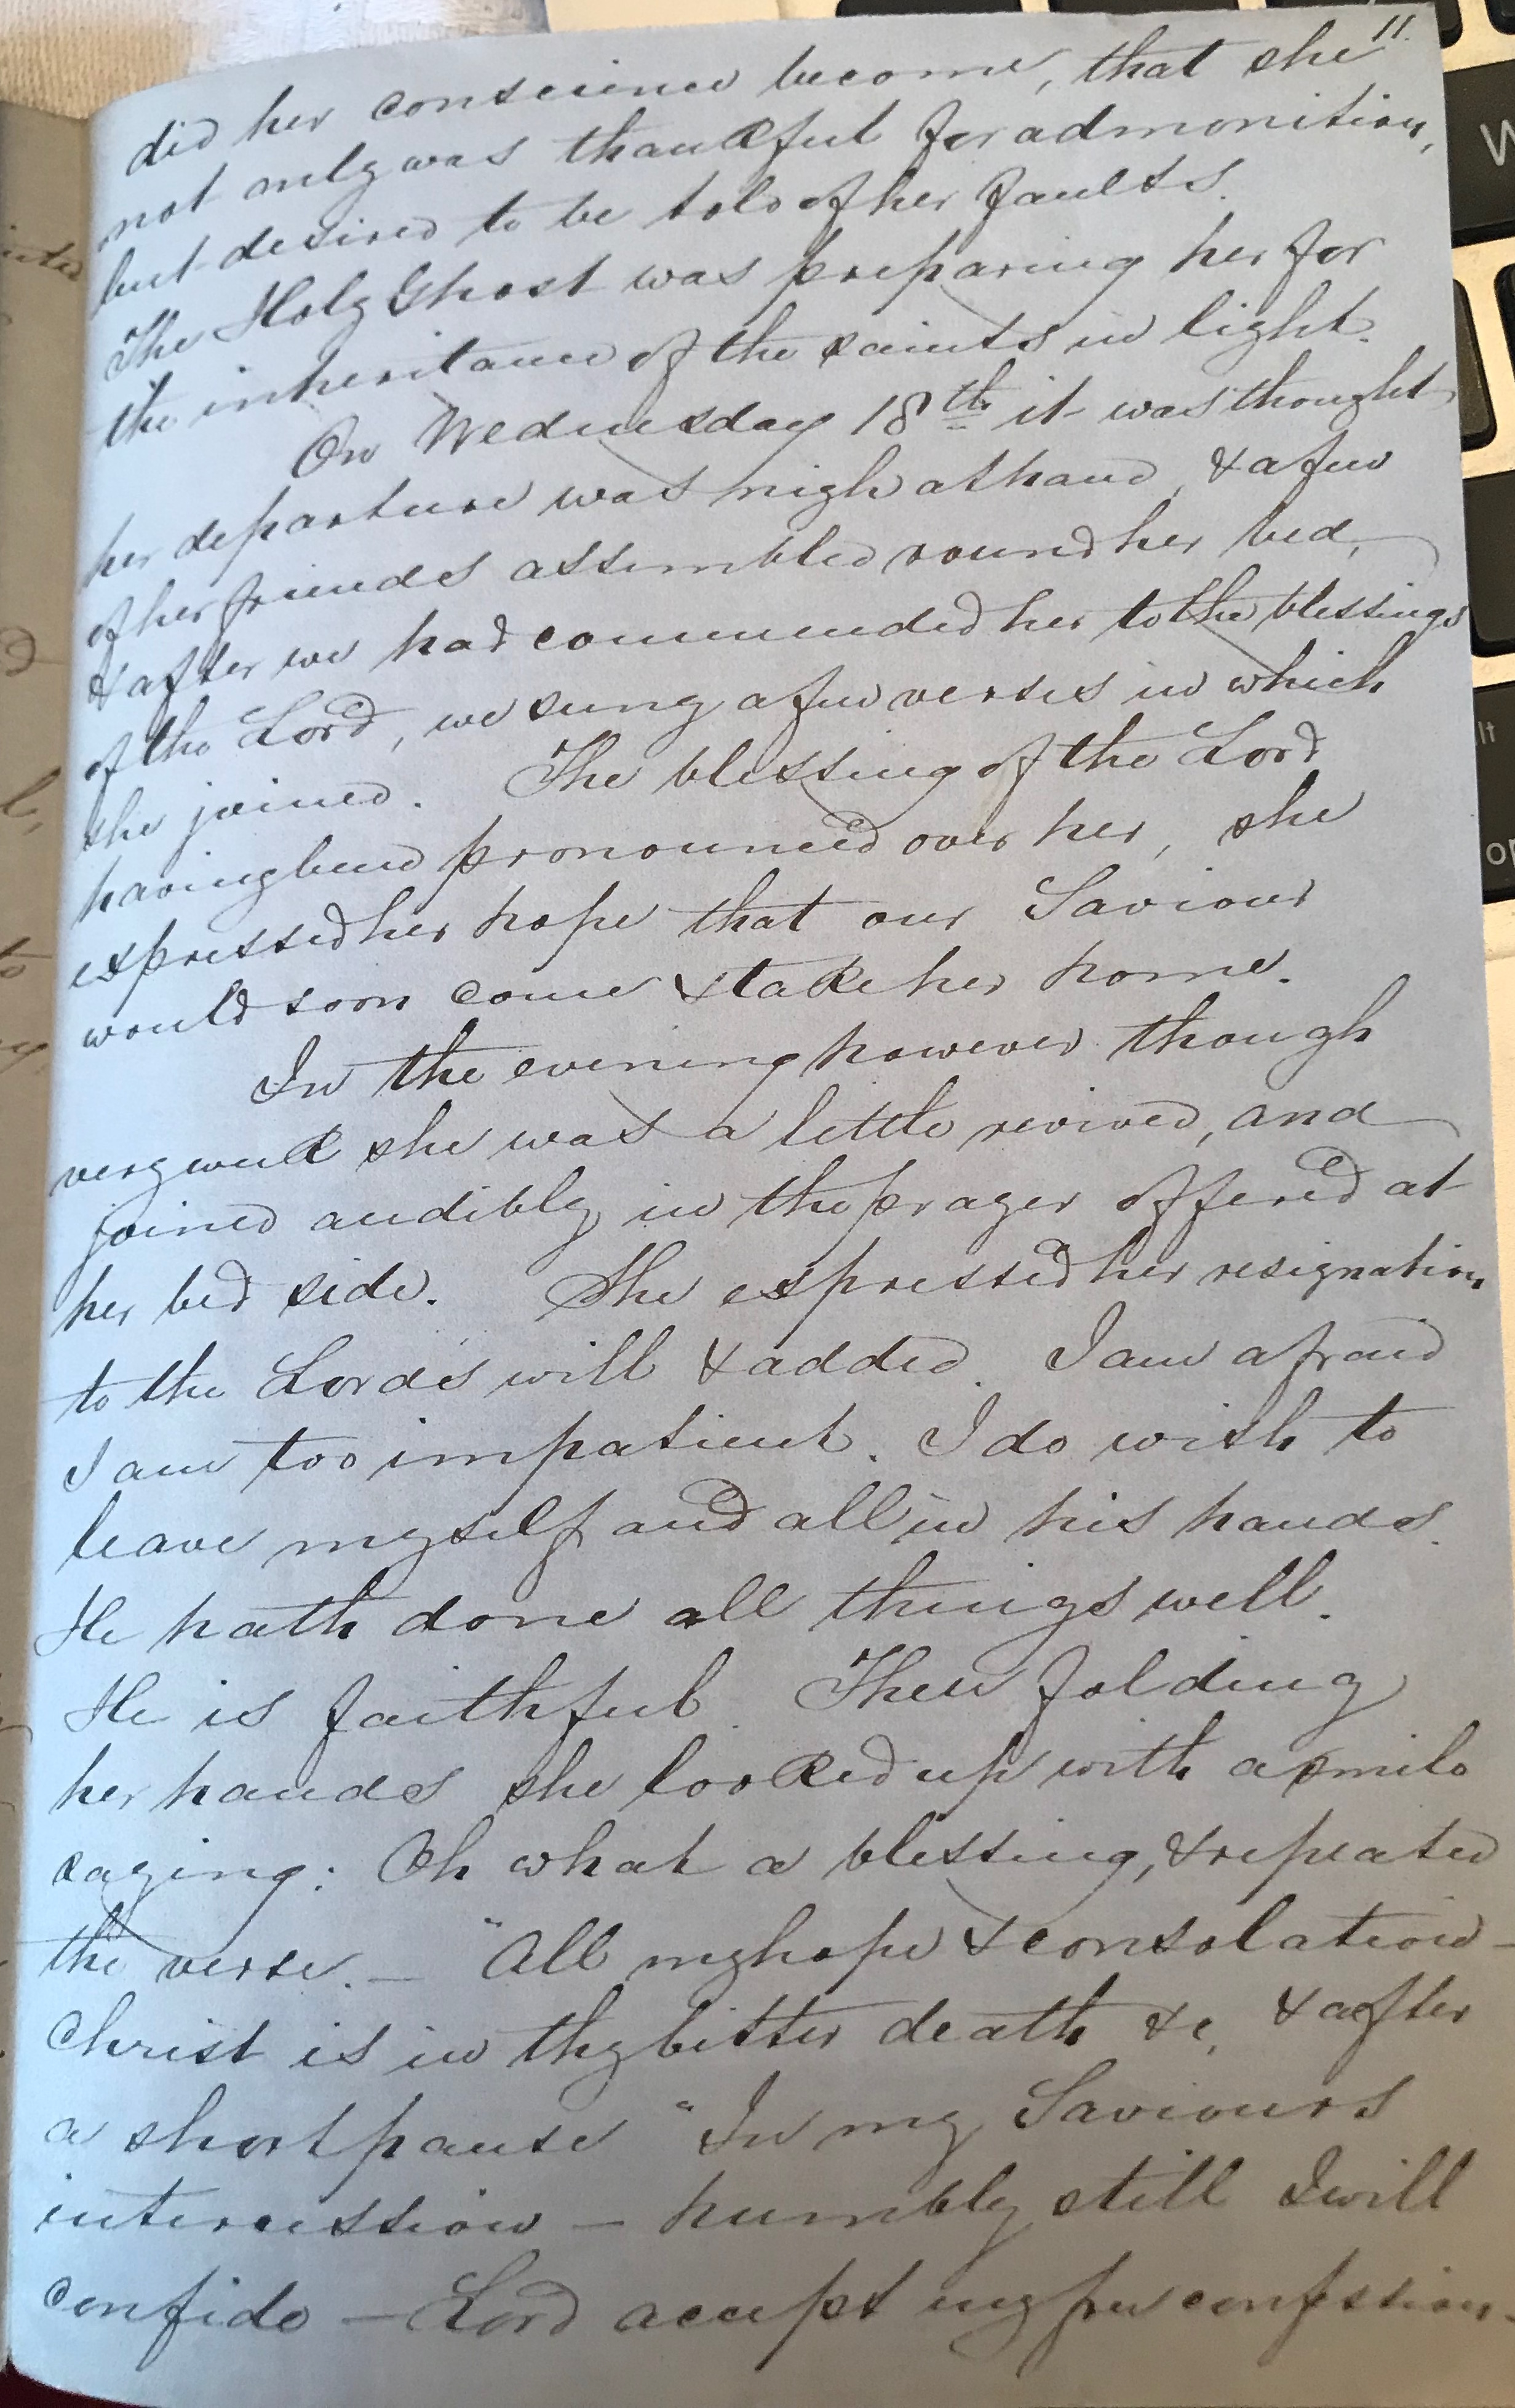 11.
did her conscience become, that she
not only was thankful for admonition,
but desired to be told of her faults.
The Holy Ghost was preparing her for
the inheritance of the saints in light.
On Wednesday 18th it was thought
her departure was nigh at hand, & a few
of her friends assembled round her bed,
& after we had commended her to the blessings
of the Lord, we sung a few verses in which
she joined. The blessing of the Lord
having been pronounced over her, she
expressed her hope that our Saviour
would soon come & take her home.
In the evening however though
very weak she was a little revived, and
joined audibly in the prayer offered at
her bed side. She expressed her resignation
to the Lord's will & added. I am afraid
I am too impatient. I do wish to
leave myself and all in his hands.
He hath done all things well.
He is faithful. Then folding
her hands she looked up with a smile
saying: Oh what a blessing, & repeated
the verse. — "All my hope & consolation —
Christ is in thy bitter death &c, & after
a short pause "In my Saviours
intercession — humbly still I will
confide — Lord accept my free confession —